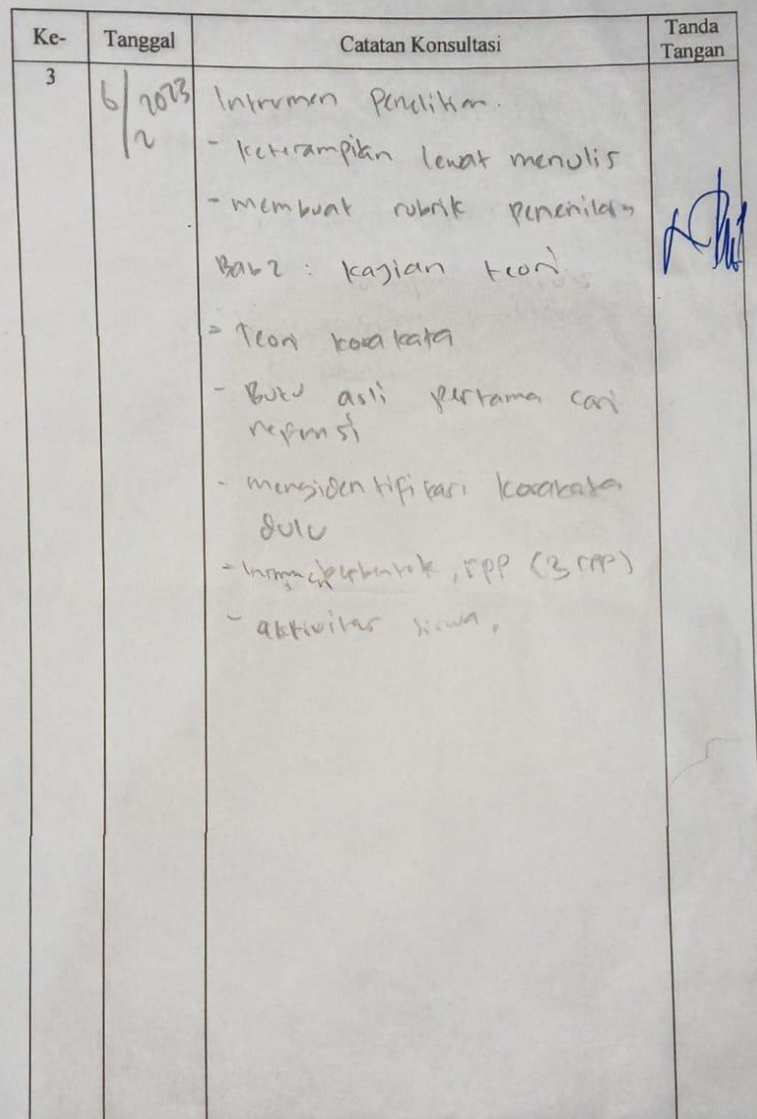 Ke- Tanggal Catatan Konsultasi Tanda Tangan
3 6/2 2023 Intrumen Penelitian.
- Keterampilan lewat menulis
- membuat rubrik penenilaian
Bab 2 : kajian teori
- Teori kosa kata
- Buku asli pertama cari
refrensi
- mengidentifikasi kosakata
dulu
- berbentuk, RPP (3 RPP)
- aktivitas siswa.